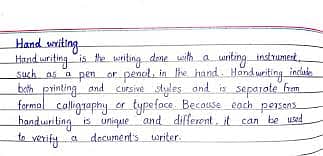 Hand writing
Handwriting is the writing done with a writing instrument,
such as a pen or pencil, in the hand. Handwriting includes
both printing and cursive styles and is separate from
formal calligraphy or typeface. Because each persons
handwriting is unique and different, it can be used
to verify a document's writer.